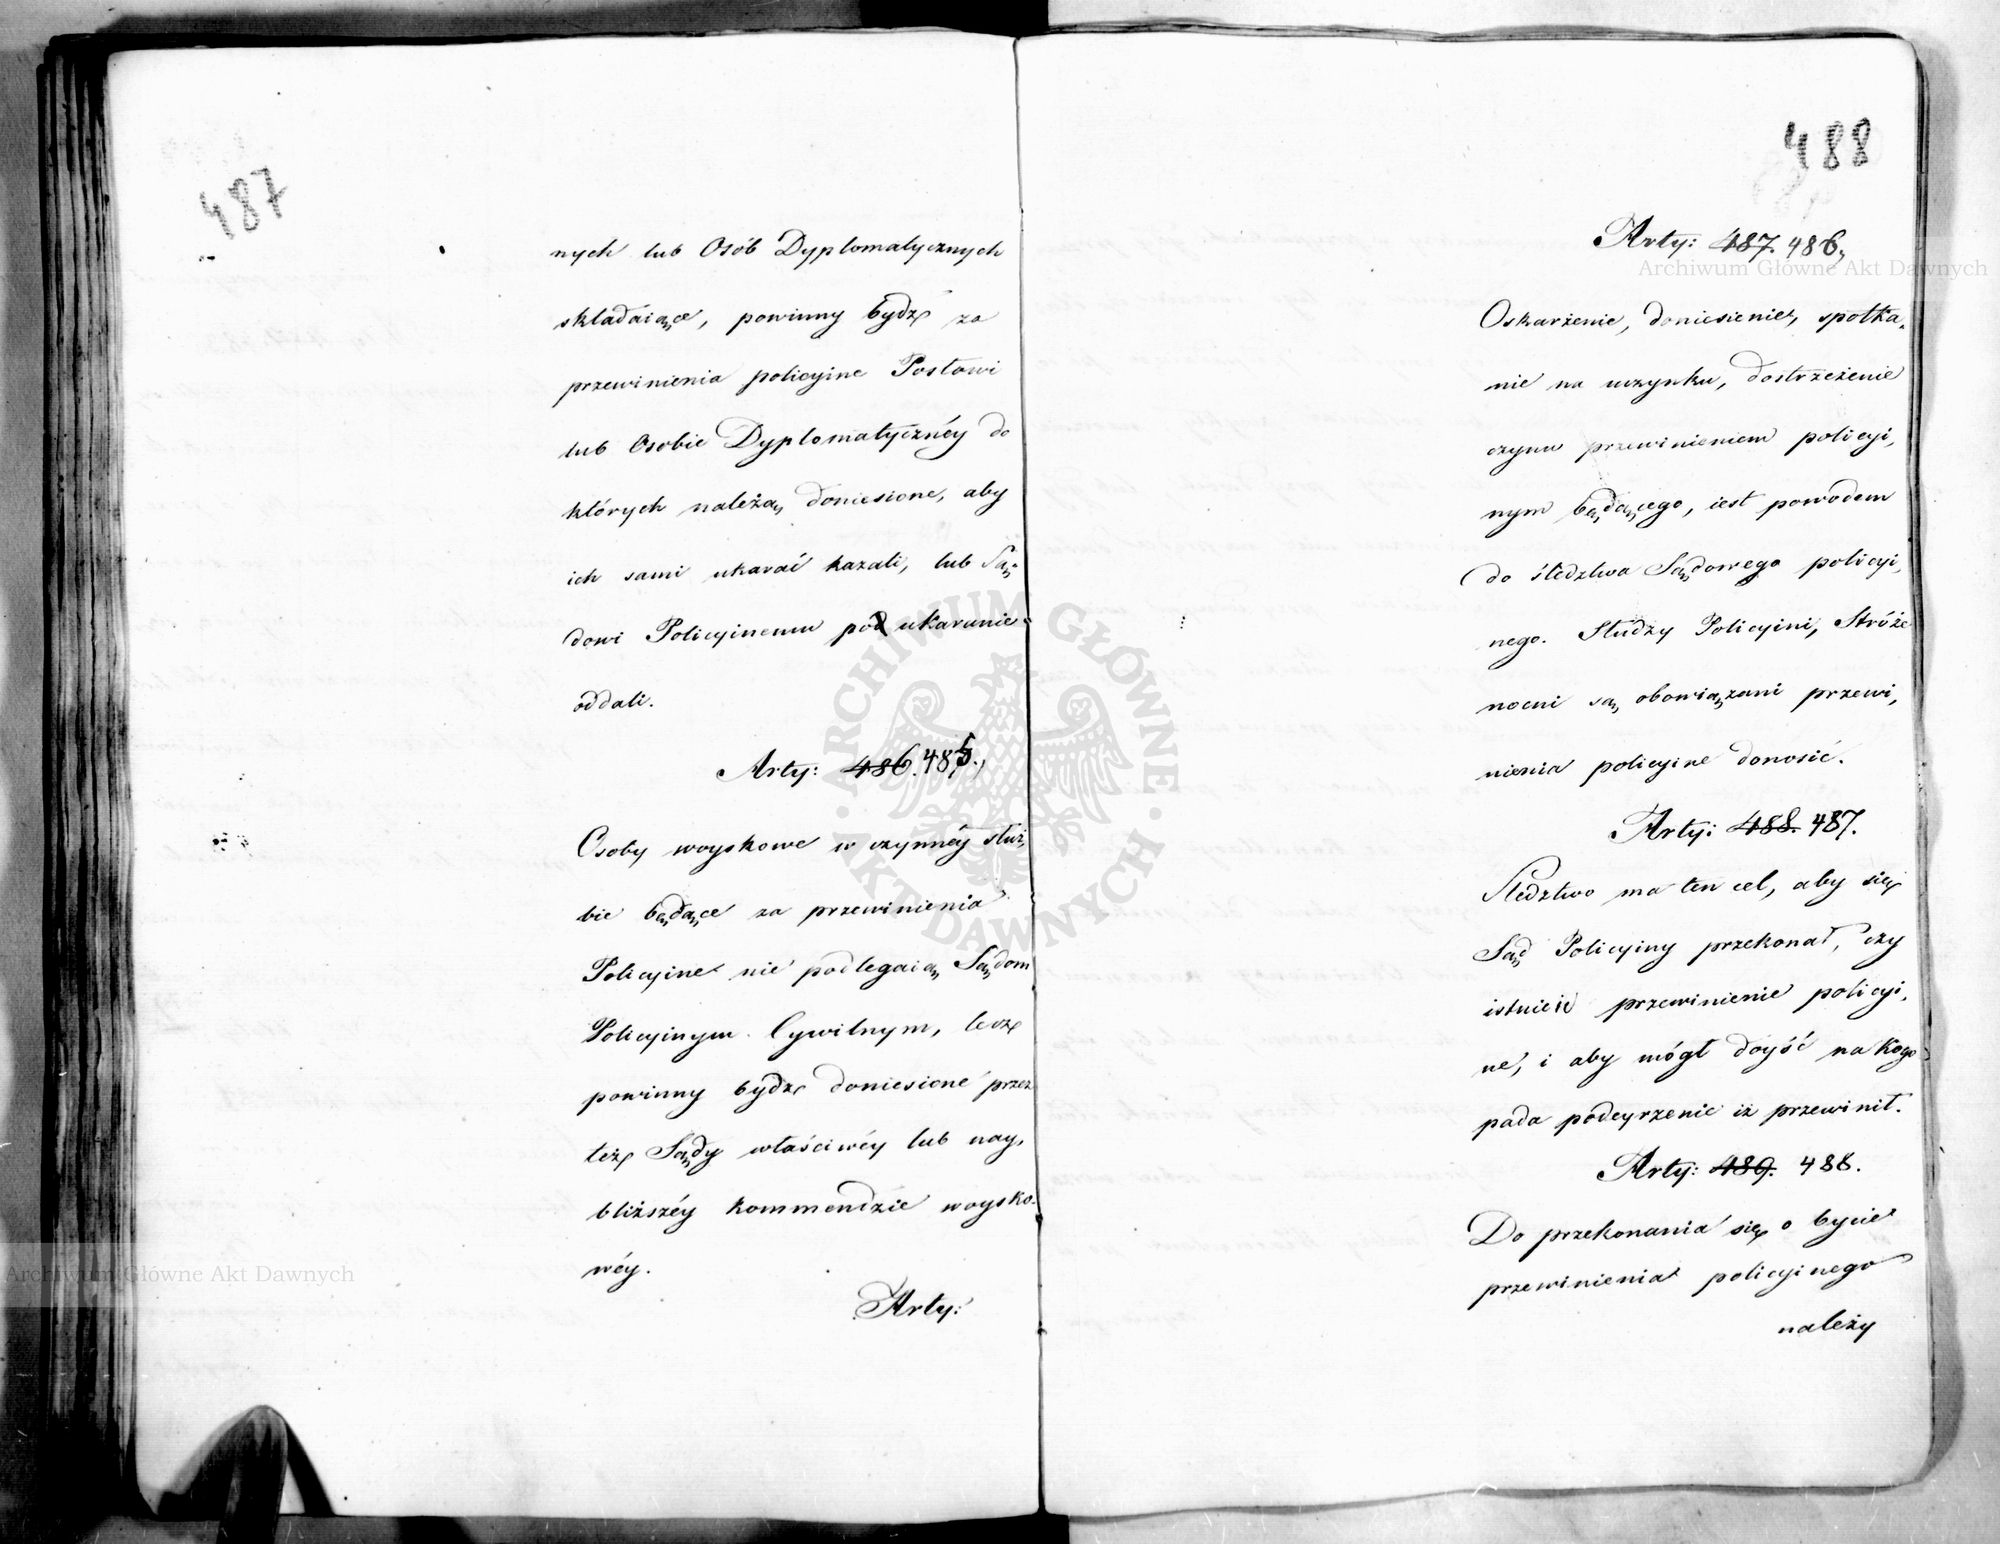 487
nych lub Osób Dyplomatycznych
składaiące, powinny bydź za
przewinienia policyine Posłowi
lub Osobie Dyplomatycznéy do
których należą, doniesione, aby
ich sami ukarać kazali, lub Są-
dowi Policyinemu pod ukaranie
oddali.
Arty: 486. 485.
Osoby woyskowe w czynnéy służ,
bie będące za przewinienia
Policyine nie podlegaią Sądom
Policyinym Cywilnym, lecz
powinny bydź doniesione przez
też Sądy właściwéy lub nay,
bliższéy kommendzie woysko-
wéy.
Arty:
488
Arty: 487. 486.
Oskarżenie, doniesienie, spotka,
nie na uczynku, dostrzeżenie
czynu przewinieniem policyi,
nym będącego, iest powodem
do śledztwa Sądowego policyi,
nego. Słudzy Policyini, Stróże
nocni są obowiązani przewi,
nienia policyine donosić.
Arty: 488. 487.
Śledztwo ma ten cel, aby się
Sąd Policyiny przekonał, czy
istnieie przewinienie policyi,
ne, i aby mógł doyść na kogo
pada podeyrzenie iż przewinił.
Arty: 489. 488.
Do przekonania się o bycie
przewinienia policyinego
należy
Archiwum Główne Akt Dawnych
Archiwum Główne Akt Dawnych
ARCHIWUM GŁÓWNE AKT DAWNYCH